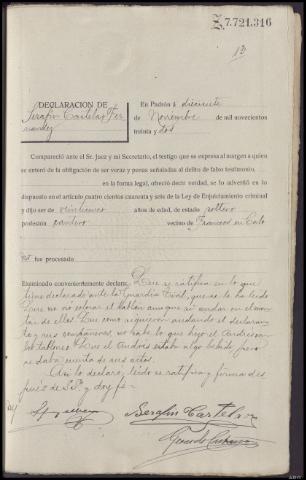 Z.7.721.316
DECLARACION DE
Serafin Cartelas Fer
nandez
En Padrón á diecisiete
de Noviembre de mil novecientos
treinta y dos
Compareció ante el Sr. Juez y mi Secretario, el testigo que se expresa al margen a quien
se enteró de la obligación de ser veraz y penas señaladas al delito de falso testimonio.
en la forma legal, ofreció decir verdad, se lo advirtió en lo
dispuesto en el artículo cuatro cientos cuarenta y seis de la Ley de Enjuiciamiento criminal
y dijo ser de años de edad, de estado soltero
profesión cantero vecino de
no fue procesado
Examinado convenientemente declara: Que se ratifica en lo que
tiene declarado ante la Guardia Civil, que se le ha leido
Que no
de ellos Que como siguieron andando el declaran
te y sus compañeros, no sabe lo que hizo el Andres en
la taberna Que el Andrés estaba algo bebido pero
se daba cuenta de sus actos
Asi lo declara, leido se ratifica y firma des
pués de S.Sª y doy fe
Serafin Cartelas
Gerardo